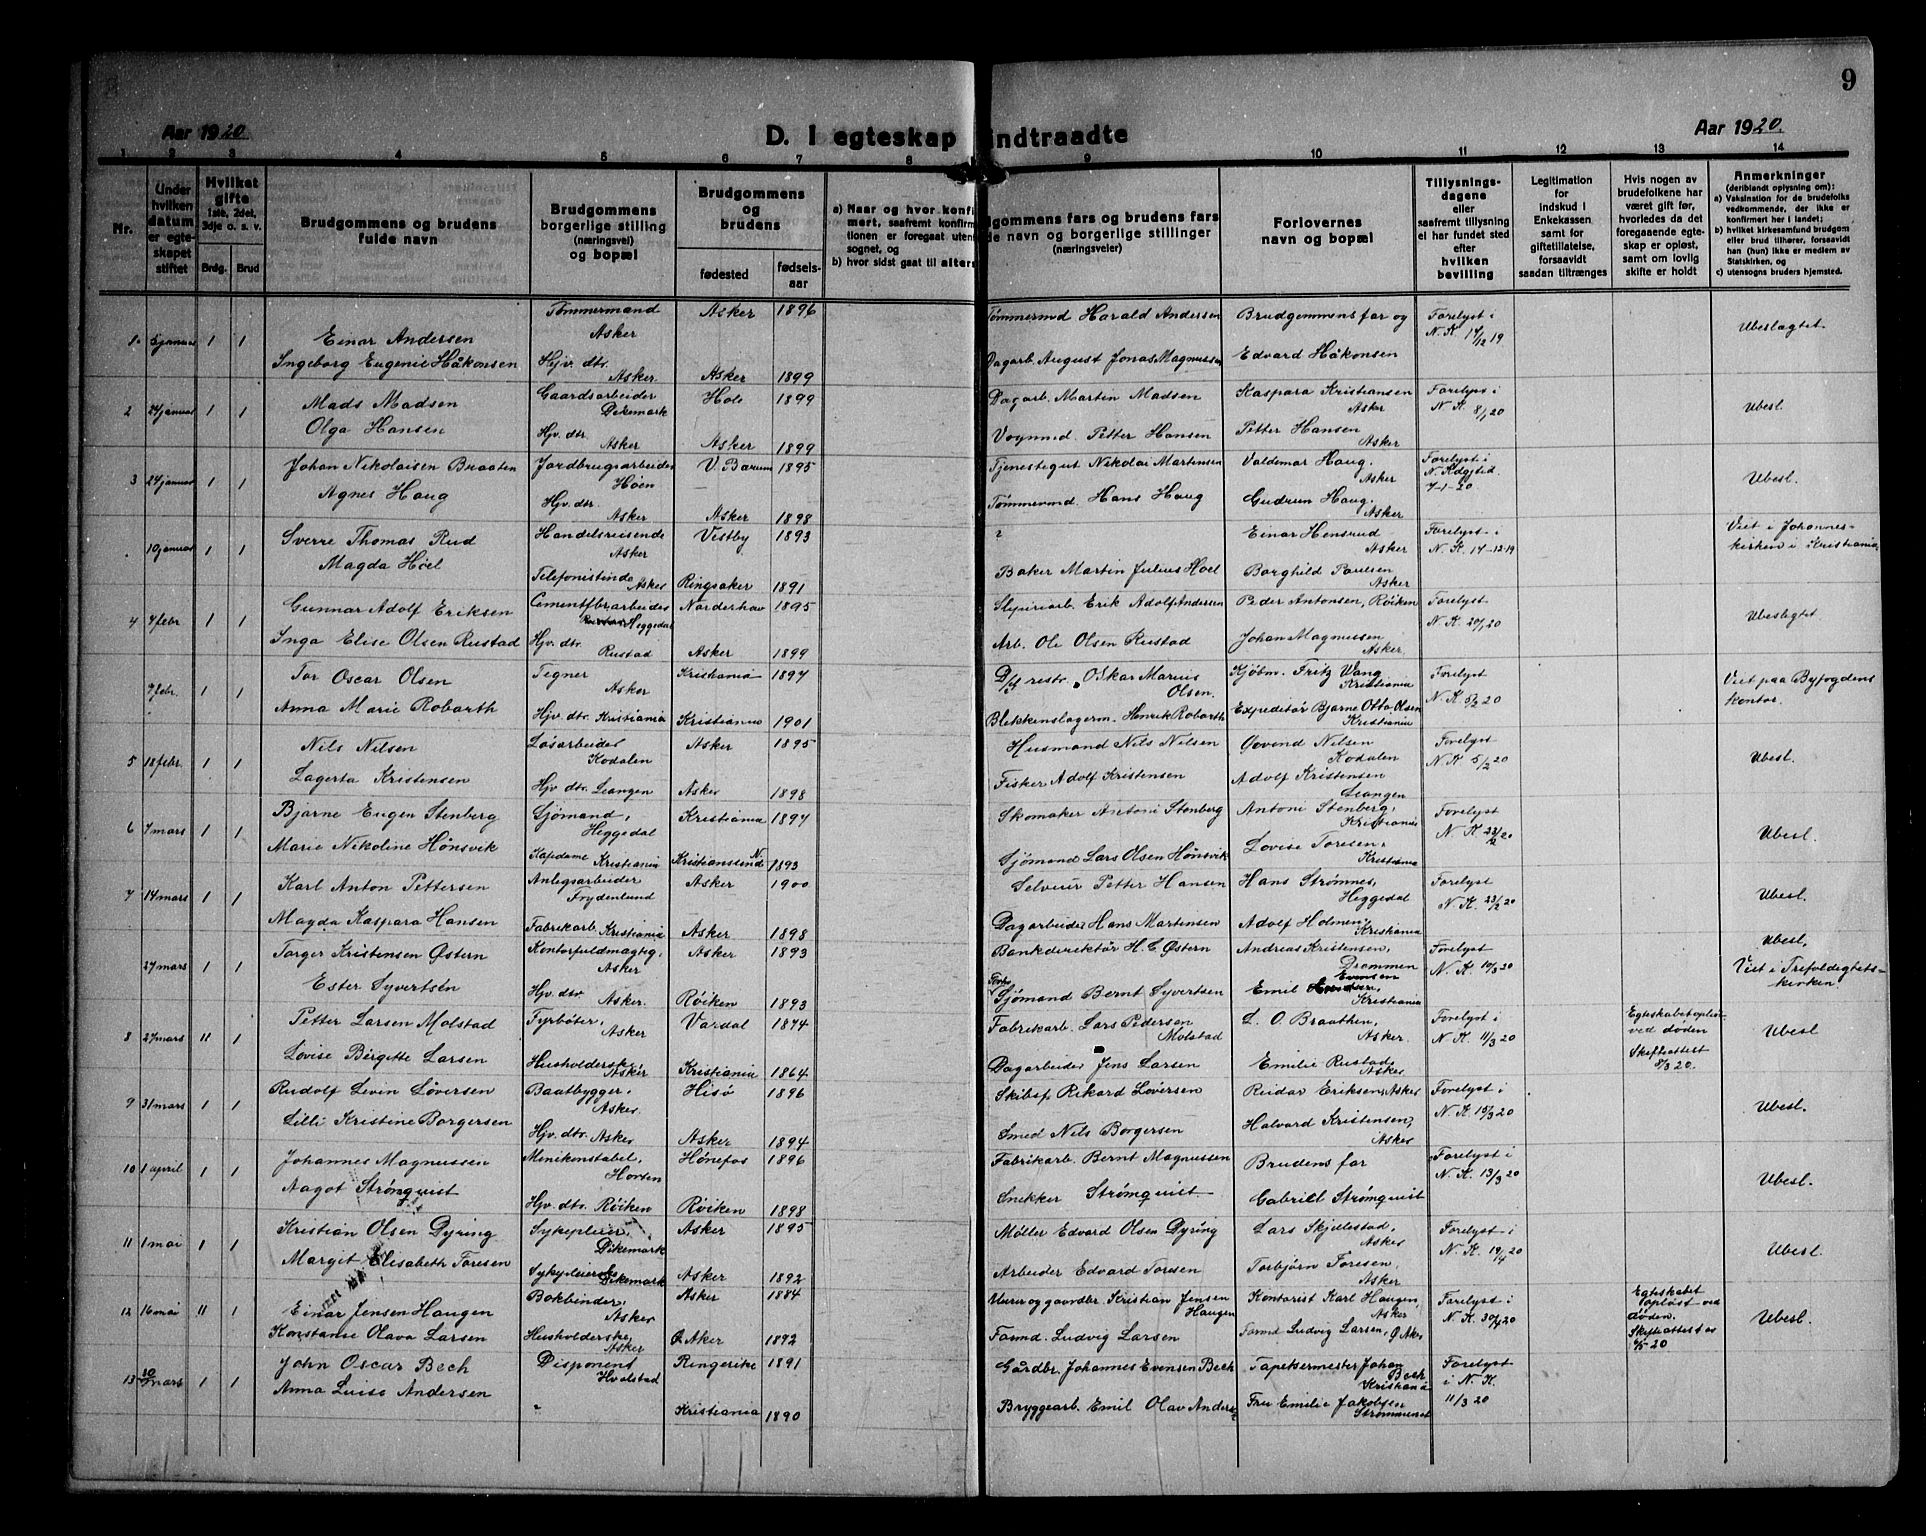 9
Aar 1920
D. I egteskap indtraadte
Aar 1920.
1 2 3 4 5 6 7 8 9 10 11 12 13 14
Nr.
Under hvilken datum er egteskapet stiftet
Hvilket gifte 1ste, 2det, 3dje o. s. v.
Brdg. Brud
Brudgommens og brudens fulde navn
Brudgommens borgerlige stilling (næringsvei) og bopæl
Brudgommens og brudens
fødested
fødsels-aar
a) Naar og hvor konfi
mert, saafremt konfirm
tionen er foregaat uten
sognet, og
b) hvor sidst gaat til alters
dgommens fars og brudens fars
de navn og borgerlige stillinger
(næringsveier)
Forlovernes navn og bopæl
Tillysnings-dagene eller saafremt tillysning ei har fundet sted efter hvilken bevilling
Legitimation for indskud i Enkekassen samt for giftetillatelse, forsaavidt saadan tiltrænges
Hvis nogen av brudefolkene har været gift før, hvorledes da det foregaaende egteskap er opløst, samt om lovlig skifte er holdt
Anmerkninger
(deriblandt oplysning om):
a) Vaksination for de brudefolks vedkommende, der ikke er konfirmert her i landet;
b) hvilket kirkesamfund brudgom eller brud tilhører, forsaavidt han (hun) ikke er medlem av Statskirken, og
c) utensogns bruders hjemsted.
1. 5 januar 1 1 Einar Andersen Tømmermand Asker Asker 1896 Tømmermd Harald Andersen Brudgommens far og Forelyst i N. K. 17/12 19 Ubeslagtet.
Ingeborg Eugenie Håkonsen Hjv. dtr. Asker Asker 1899 Dagarb. August Jonas Magnussen Edvard Håkonsen
2 24 januar 1 1 Mads Madsen Gaardsarbeider Dikemark Hole 1899 Dagarb. Martin Madsen Kaspara Kristiansen Asker Forelyst i N. K. 8/1 20 Ubesl.
Olga Hansen Hjv. dtr. Asker Asker 1899 Vognmd. Petter Hansen Petter Hansen Asker
3 24 januar 1 1 Johan Nikolaisen Braaten Jordbrugsarbeider Høen V. Bærum 1895 Tjenestegut Nikolai Martensen Valdemar Haug, Asker Forelyst i N. Kdgstid. 7-1-20. Ubesl.
Agnes Haug Hjv. dtr. Asker Asker 1898 Tømmermd Hans Haug Gudrun Haug, Asker
. 10 januar 1 1 Sverre Thomas Rud Handelsreisende Asker Vestby 1893 ? Einar Hensrud Asker Forelyst i N. K. 17-12-19 Viet i Johannes-kirken i Kristiania
Magda Hoel Telefonistinde Asker Ringsaker 1891 Baker Martin Julius Hoel Borghild Paulsen Asker
4 4 febr 1 1 Gunnar Adolf Eriksen Cementfbrarbeider Heggedal Norderhov 1895 Slipiriarb. Erik Adolf Andersen Peder Antonsen, Røiken Forelyst N. K. 20/1 20 Ubeslegtet
Inga Elise Olsen Rustad Hjv. dtr. Rustad Asker 1899 Arb. Ole Olsen Rustad Johan Magnussen Asker
9 febr. 1 1 Tor Oscar Olsen Tegner Asker Kristiania 1894 restr. Oskar Marius Olsen. Kjøbm. Fritz Wang Kristiania Forelyst N. K. 5/2 20 Viet paa Byfogdens kontor.
Anna Marie Robarth Hjv. dtr. Kristiania Kristiania 1901 Blekkenslagerm. Henrik Robarth Expeditør Bjarne Otto Olsen Kristiania
5 18 febr. 1 1 Nils Nilsen Løsarbeider Kodalen Asker 1895 Husmand Nils Nilsen Oovend Nilsen Kodalen Forelyst N. K 5/2 20 Ubesl.
Lagerta Kristensen Hjv. dtr. Leangen Asker 1898 Fisker Adolf Kristensen Adolf Kristensen Leangen
6 7 mars 1 1 Bjarne Eugen Stenberg Sjømand, Heggedal Kristiania 1894 Skomaker Antoni Stenberg Antoni Stenberg, Kristiania Forelyst N. K 23/2 20 Ubesl.
Marie Nikoline Hønsvik Kapedame Kristiania Kristianssund N 1893 Sjømand Lars Olsen Hønsvik Lovise Toresen, Kristiania
7 14 mars 1 1 Karl Anton Pettersen Anlegsarbeider Frydenlund Asker 1900 Selveier Petter Hansen Hans Strømnes, Heggedal Forelyst N. K. 23/2 20 Ubesl.
Magda Kaspara Hansen Fabrikarb. Kristiania Asker 1898 Dagarbeider Hans Martensen Adolf Holmen Kristiania
27 mars 1 1 Torger Kristensen Østern Kontorfuldmægtig, Asker Asker 1893 Bankdirektør H. C. Østern Andreas Kristensen, Drammen Forelyst N. K. 10/3 20 Ubesl. Viet i Trefoldighets-kirken.
Ester Syvertsen Hjv. dtr. Asker. Røiken 1893 Sjømand Bernt Syvertsen Emil Evensen Kristiania
8 27 mars 11 1 Petter Larsen Molstad Fyrbøter, Asker Vardal 1874 Fabrikarb. Lars Pedersen Molstad L. O. Braathen, Asker Forelyst i N. K. 11/3 20 Egteskabet opløst ved døden Skifteattest 8/3 20. Ubesl
Lovise Birgitte Larsen Husholderske Asker Kristiania 1864 Dagarbeider Jens Larsen Emilie Rustad, Asker
9 31 mars 1 1 Rudolf Levin Løversen Baatbygger, Asker Hisø 1896 Skibsf Rikard Løversen Reidar Eriksen, Asker Forelyst i N. K. 15/3 20 Ubesl.
Lilli Kristine Borgersen Hjv. dtr. Asker Asker 1894 Smed Nils Borgersen Halvard Kristensen, Asker
10 1 april 1 1 Johannes Magnussen Minikonstabel, Horten Hønefos 1896 Fabrikarb. Bernt Magnussen Brudens far Forelyst i N. K. 13/3 20 Ubesl.
Aagot Strømquist Hjv. dtr. Røiken Røiken 1898 Snekker Strømquist Gabriell Strømquist
11 1 mai 1 1 Kristian Olsen Dyring Sykepleier, Dikemark Asker 1895 Møller Edvard Olsen Dyring Lars Skjellestad, Asker Forelyst i N. K. 19/4 20 Ubesl.
Margit Elisabeth Toresen Sykepleierske Dikemark Asker 1892 Arbeider Edvard Toresen Torbjørn Toresen, Asker
12 16 mai 11 1 Einar Jensen Haugen Bokbinder, Asker Asker 1884 Murer og gaardbr. Kristian Jensen Haugen Kontorist Karl Haugen, Asker Forelyst i N. K. 30/4 20 Egteskabet opløst ved døden. Skifteattest 20 Ubesl.
Konstanse Olava Larsen Husholderske Asker Ø. Aker 1892 Formd. Ludvig Larsen Formd Ludvig Larsen, Ø. Aker
13 30 mars 1 1 John Oscar Bech Disponent Hvalstad Ringerike 1891 Gårdbr. Johannes Evensen Bech Tapetsermester Johan Bech Kristiania Forelyst i N. K. 11/3 20
Anna Luise Andersen " Kristiania 1890 Bryggearb. Emil Olav Anders. Fru Emilie Jakobsen Strømmen